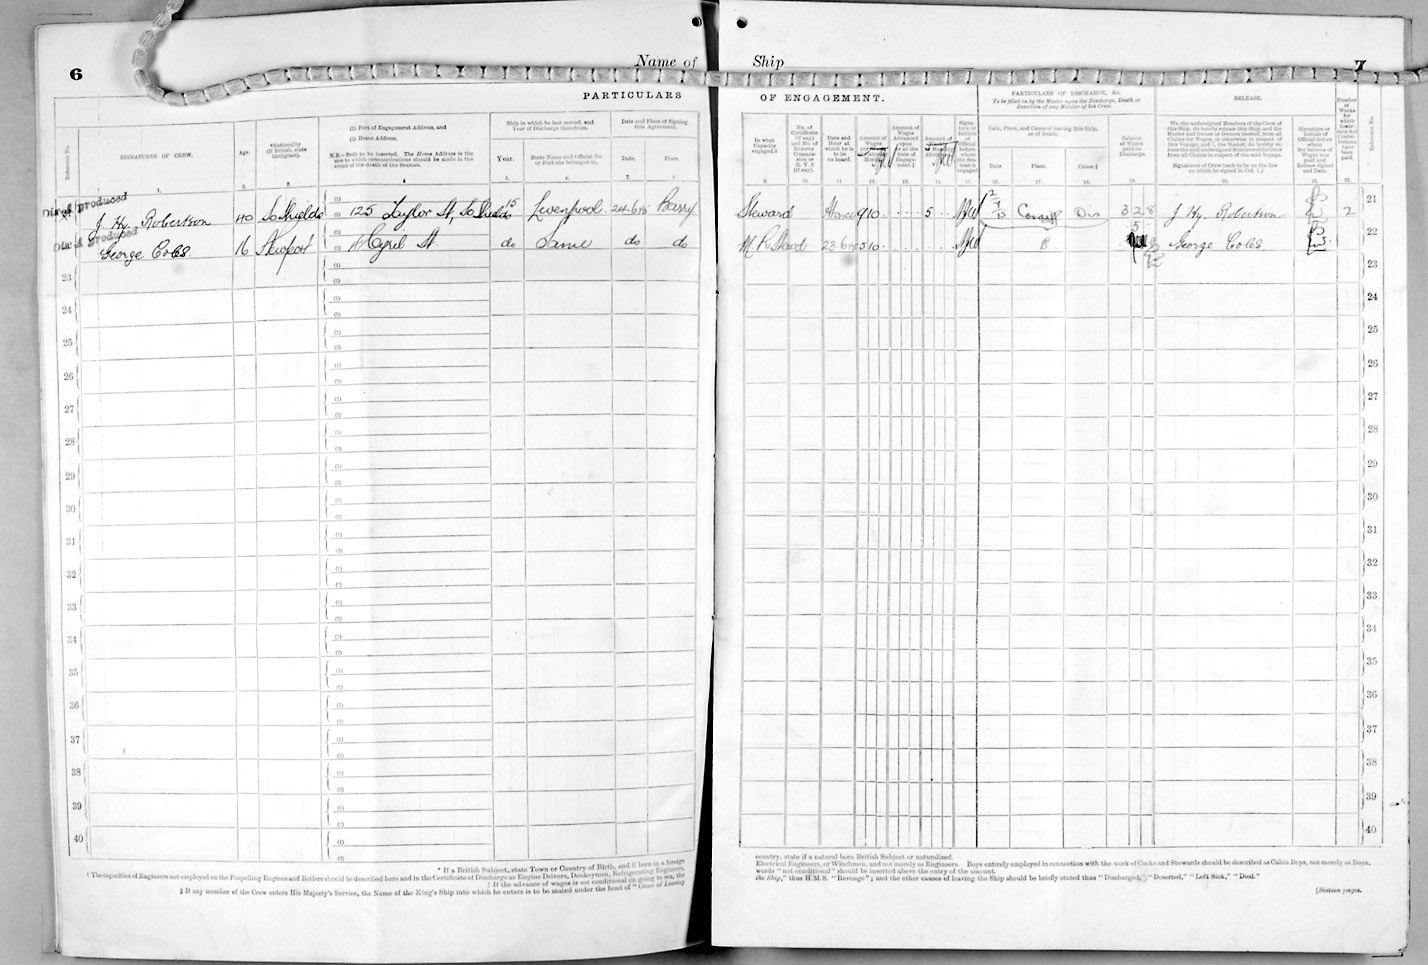 6
Name of
Ship
7
PARTICULARS
OF ENGAGEMENT.
PARTICULARS OF DISCHARGE, &c.
To be filled in by the Master upon the Discharge, Death or
Desertion of any Member of his Crew.
RELEASE.
Reference No.
SIGNATURES OF CREW.
Age.
*Nationality
(If British, state
birthplace).
(1) Port of Engagement Address, and
(2) Home Address.
N.B.—Both to be inserted. The Home Address is the
one to which communications should be made in the
event of the death of the Seaman.
Ship in which he last served, and
Year of Discharge therefrom.
Year.
State Name and Official No.
or Port she belonged to.
Date and Place of Signing
this Agreement.
Date.
Place.
In what
Capacity
engaged.†
No. of
Certificate
(if any)
and No. of
Reserve
Commis-
sion or
R. V. 2
(if any).
Date and
Hour at
which he is
to be
on board.
Amount of
Wages
Amount of
Wages
Advanced
upon
or at the
time of
Engage-
ment.‡
Amount of
Signa-
ture or
Initials
of
Official
before
whom
the Sea-
man is
engaged
Date, Place, and Cause of leaving this Ship,
or of Death.
Date.
Place.
Cause.§
Balance
of Wages
paid on
Discharge.
We, the undersigned Members of the Crew of
this Ship, do hereby release this Ship, and the
Master and Owner or Owners thereof, from all
Claims for Wages, or otherwise in respect of
this Voyage; and I, the Master, do hereby re-
lease the undersigned Members of the Crew
from all Claims in respect of the said Voyage.
Signatures of Crew (each to be on the line
on which he signed in Col. 1.)
Signature or
Initials of
Official before
whom
the balance of
Wages was
paid and
Release signed
and Date.
Number
of
Weeks
for
which
Reference No.
Dis. A produced
J. Hy. Robertson 40 So Shields 125 Taylor St, So Shields 15 Liverpool 24.6.15 Barry
Steward 9 10 5 Cardiff Dis 3 2 8 J. Hy. Robertson 2 21
Dis. A produced
George Coles 16 Newport Cyril St. do Same do do
23.6 George Coles 22
23 23
24 24
25 25
26 26
27 27
28 28
29 29
30 30
31 31
32 32
33 33
34 34
35 35
36 36
37 37
38 38
39 39
40 40
* If a British Subject, state Town or Country of Birth, and if born in a foreign
country, state if a natural born British Subject or naturalised.
† The capacities of Engineers not employed on the Propelling Engines and Boilers should be described here and in the Certificate of Discharge as Engine Drivers, Donkeymen, Refrigerating Engineers,
Electrical Engineers, or Winchmen, and not merely as Engineers. Boys entirely employed in connection with the work of Cooks and Stewards should be described as Cabin Boys, not merely as Boys.
‡ If the advance of wages is not conditional on going to sea, the
words "not conditional" should be inserted above the entry of the amount.
§ If any member of the Crew enters His Majesty's Service, the Name of the King's Ship into which he enters is to be stated under the head of "Cause of Leaving
the Ship," thus H.M.S. "Revenge"; and the other causes of leaving the Ship should be briefly stated thus "Discharged," "Deserted," "Left Sick," "Died."
[Sixteen pages.